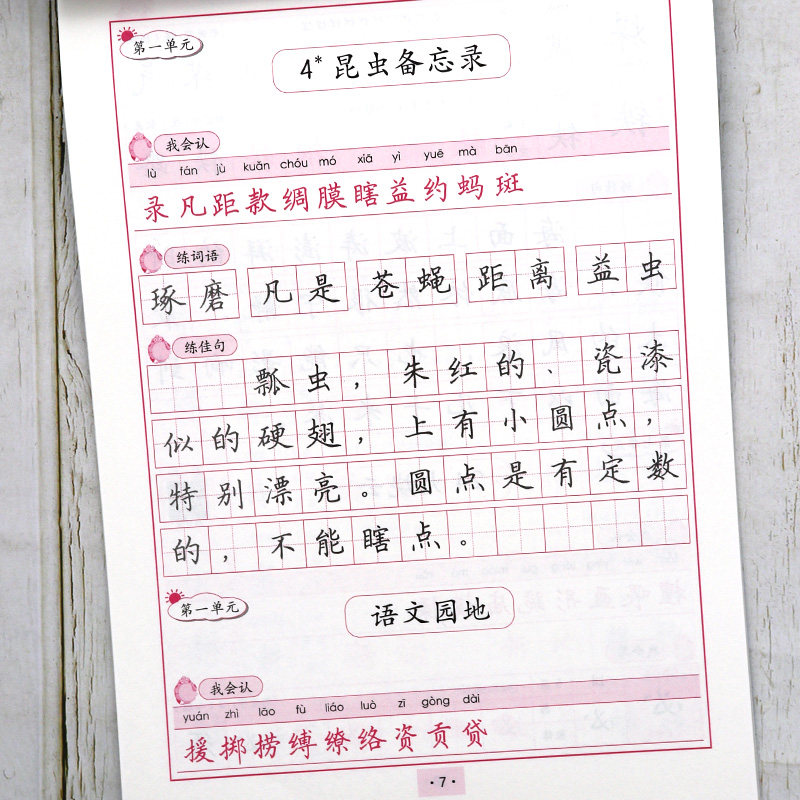 第一单元
4* 昆虫备忘录
我会认
lù fán jù kuǎn chóu mó xiā yì yuē mà bān
录凡距款绸膜瞎益约蚂斑
练词语
琢磨 凡是 苍蝇 距离 益虫
练佳句
瓢虫，朱红的、瓷漆
似的硬翅，上有小圆点，
特别漂亮。圆点是有定数
的，不能瞎点。
第一单元
语文园地
我会认
yuán zhì lāo fù liáo luò zī gòng dài
援掷捞缚缭络资贡贷
·7·